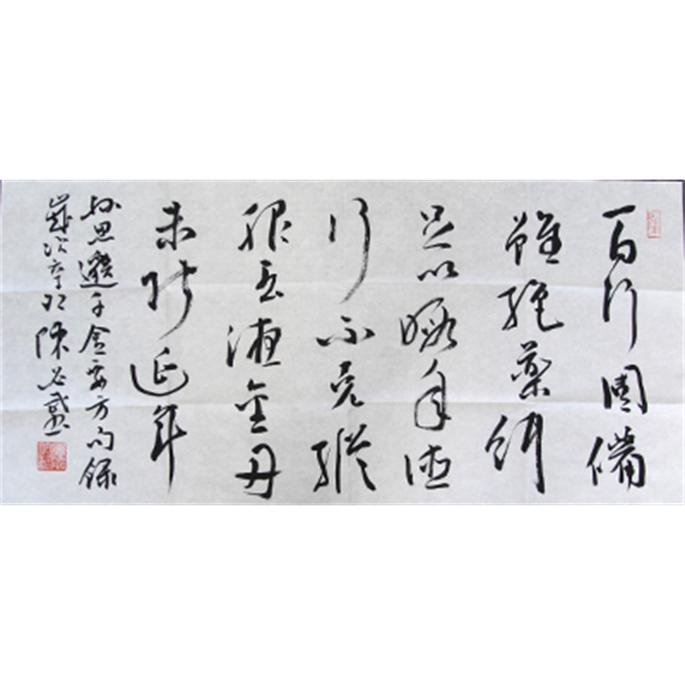 百行周備
雖絕藥餌
足以遐年德
行不克縱
服玉液金丹
未能延年
孫思邈千金要方句錄
歲次陳必